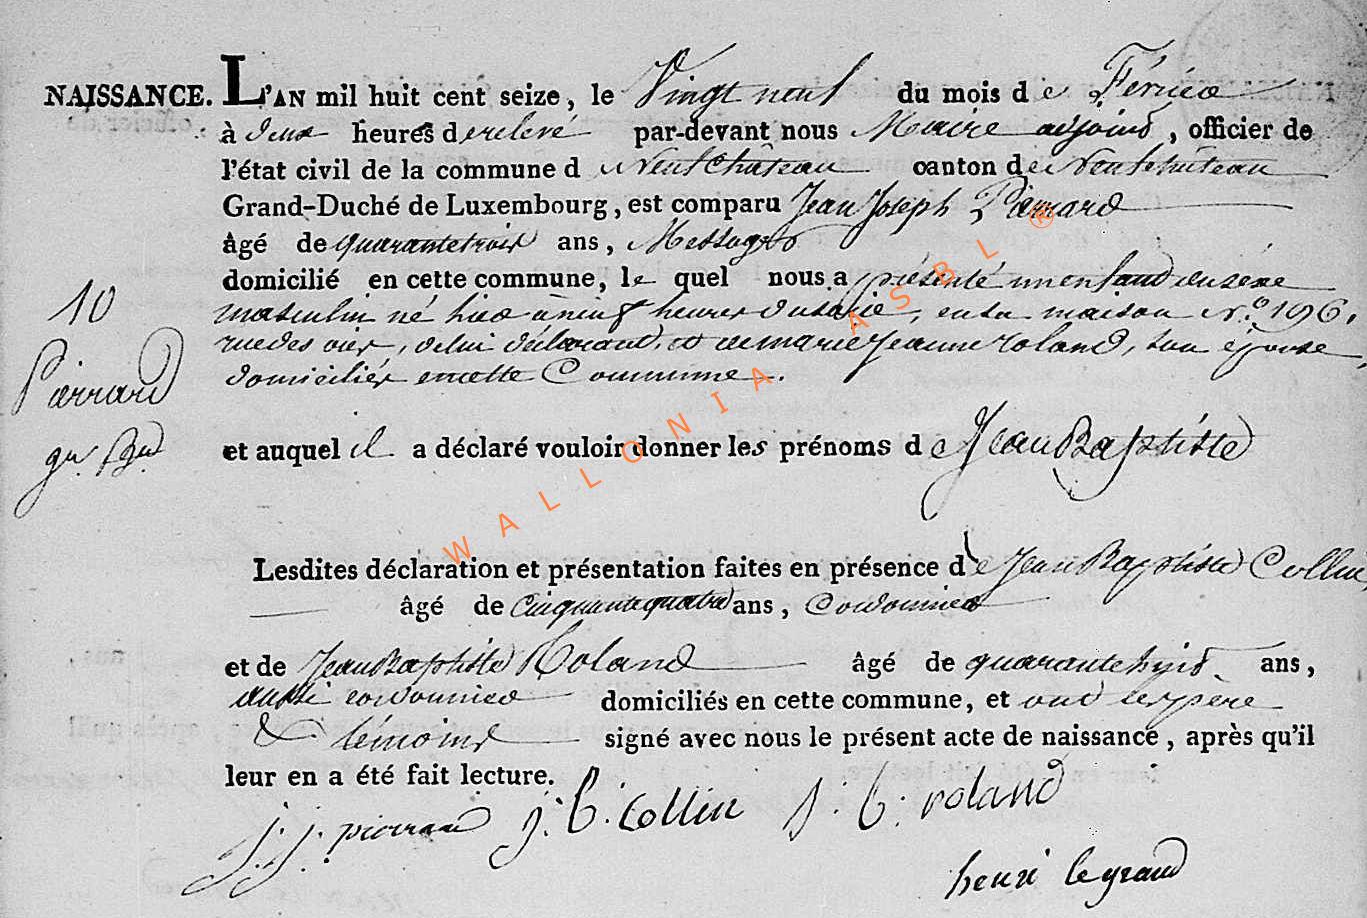 NAISSANCE. L'AN mil huit cent seize, le Vingt neuf du mois de Février
à deux heures de relevé par-devant nous Maire adjoint, officier de
l'état civil de la commune d Neufchâteau canton de Neufchâteau
Grand-Duché de Luxembourg, est comparu Jean Joseph Pierrard
âgé de quarante trois ans, Messager
domicilié en cette commune, le quel nous a présenté un enfant du sexe
masculin né hier à neuf heures du soir, en sa maison N.º 196,
rue des oies, de lui déclarant, et de marie jeanne roland, son épouse,
domiciliés en cette Commune.
10
Pierrard
jn. Bte
et auquel il a déclaré vouloir donner les prénoms de Jean Baptiste
Lesdites déclaration et présentation faites en présence de Jean Baptiste Collin,
âgé de Cinquante quatre ans, Cordonnier
et de Jean Baptiste Roland âgé de quarante huit ans,
aussi cordonnier domiciliés en cette commune, et ont les père
& témoins signé avec nous le présent acte de naissance, après qu'il
leur en a été fait lecture.
j. j. pierrard j. b. collin j. b. roland
henri legrand
WALLONIA ASBL ®